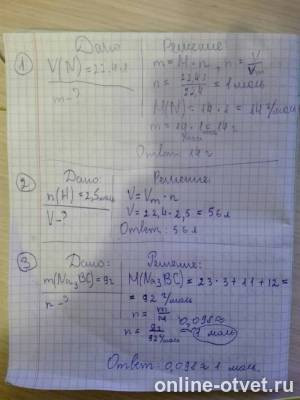 1
Дано
V(N)=22,4 л
m-?
Решение
m = M · n, n = V/Vm
n = 22,4/22,4 = 1 моль
M(N) = 14 · 1 = 14 г/моль
m = 14 · 1 = 14 г
Ответ: 14 г
2
Дано:
n(H)=2,5 моль
V-?
Решение:
V = Vm · n
V = 22,4 · 2,5 = 56 л
Ответ: 56 л
3
Дано:
m(Na3BC)=9г
n-?
Решение:
M(Na3BC) = 23·3+11+12=
= 92 г/моль
n = m/M
0,098≈
1 моль
Ответ: 0,098≈1 моль.
online-otvet.ru